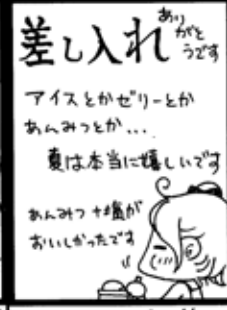 差し入れ
ありがとうです
アイスとかゼリーとか
あんみつとか...
夏は本当に嬉しいです
あんみつ+塩が
おいしかったです